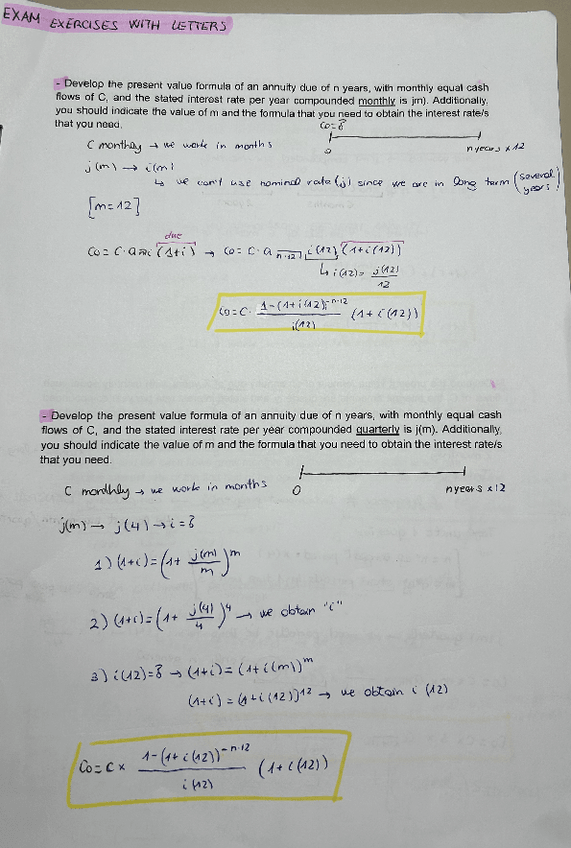 EXAM EXERCISES WITH LETTERS
- Develop the present value formula of an annuity due of n years, with monthly equal cash
flows of C, and the stated interest rate per year compounded monthly is jm). Additionally,
you should indicate the value of m and the formula that you need to obtain the interest rate/s
that you need.
Co=?
C monthly → we work in months
0 n years x 12
j(m) → i(m)
↳ we can't use nominal rate (j) since we are in long term (several years)
[m=12]
due
Co = C · a n¬i (1+i) → Co = C · a n·12¬ i(12) (1+i(12))
↳ i(12) = j(12)/12
Co = C · 1-(1+i(12))^-n·12 / i(12) (1+i(12))
- Develop the present value formula of an annuity due of n years, with monthly equal cash
flows of C, and the stated interest rate per year compounded quarterly is j(m). Additionally,
you should indicate the value of m and the formula that you need to obtain the interest rate/s
that you need.
C monthly → we work in months
0 n years x 12
j(m) → j(4) → i=?
1) (1+i) = (1+ j(m)/m)^m
2) (1+i) = (1+ j(4)/4)^4 → we obtain "i"
3) i(12)=? → (1+i) = (1+i(m))^m
(1+i) = (1+i(12))^12 → we obtain i(12)
Co = C x 1-(1+i(12))^-n·12 / i(12) (1+i(12))